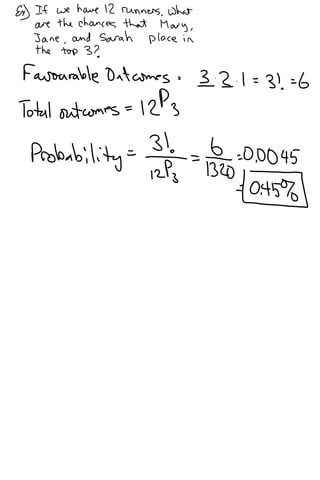 Ex) If we have 12 runners, what
are the chances that Mary,
Jane, and Sarah place in
the top 3?
Favourable Outcomes = 3 · 2 · 1 = 3! = 6
Total outcomes = 12P3
Probability = 3! / 12P3 = 6 / 1320 = 0.0045
= 0.45%